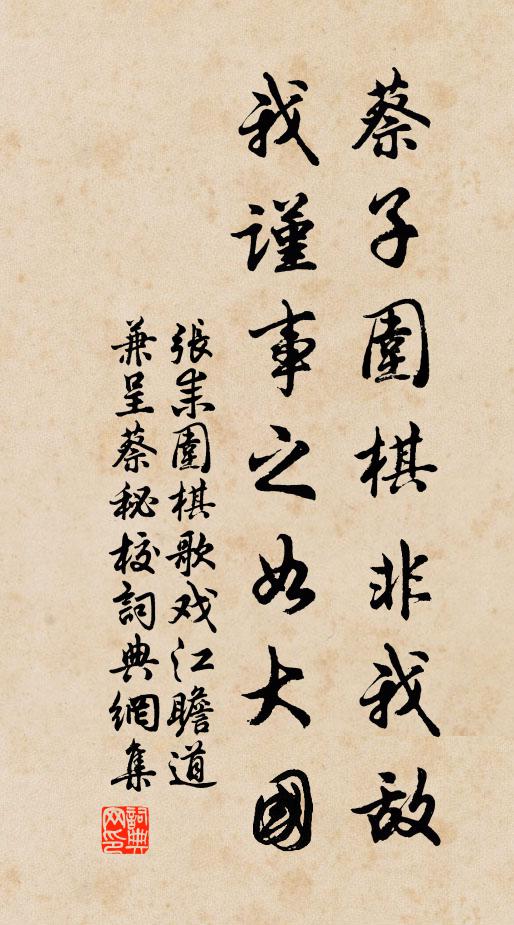 蔡子圍棋非我敵
我謹事之如大國
張耒圍棋歌戏江瞻道
兼呈蔡秘校詞典網集
詞典网印